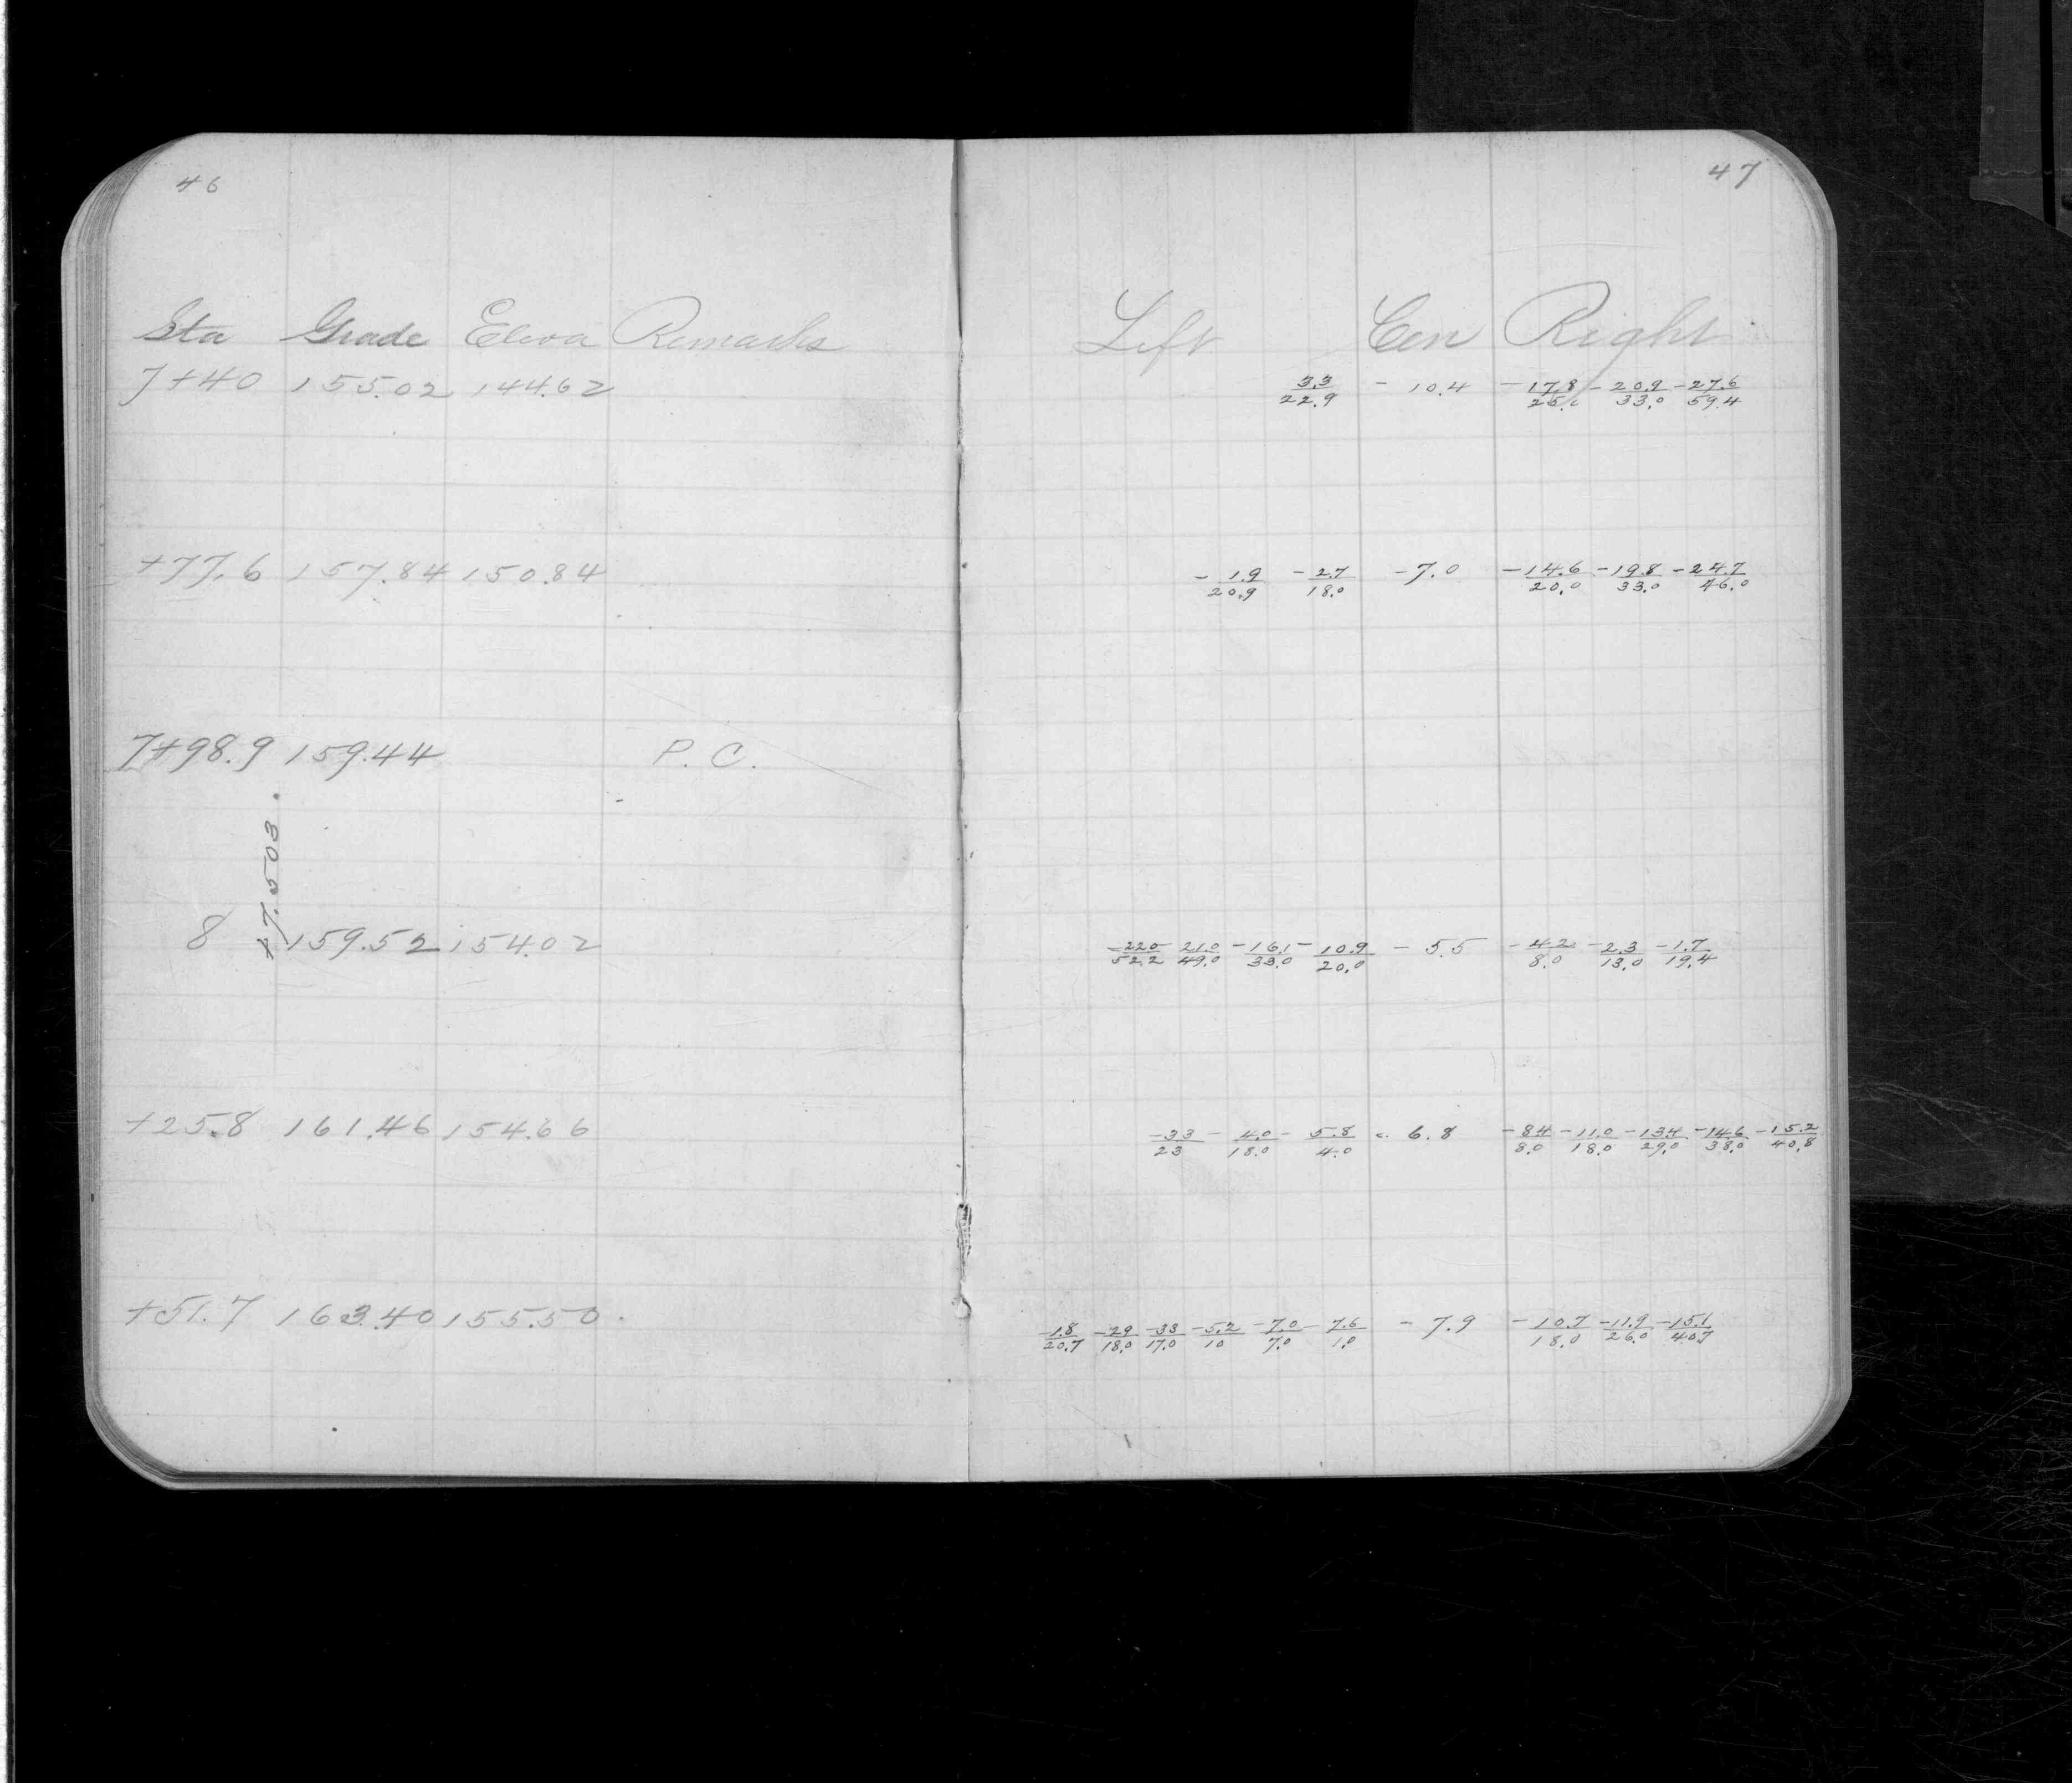 46
Sta Grade Eleva Remarks
7+40 155.02 144.62
+77.6 157.84 150.84
7+98.9 159.44 P. C.
+7.503
8 159.52 154.02
+25.8 161.46 154.66
+51.7 163.40 155.50
47
Left Cen Right
3.3/22.9 - 10.4 - 17.8/25.0 - 20.9/33.0 - 27.6/59.4
- 1.9/20.9 - 2.7/18.0 - 7.0 - 14.6/20.0 - 19.8/33.0 - 24.7/46.0
- 22.0/52.2 21.0/49.0 - 16.1/33.0 - 10.9/20.0 - 5.5 - 4.2/8.0 - 2.3/13.0 - 1.7/19.4
- 3.3/23 - 4.0/18.0 - 5.8/4.0 - 6.8 - 8.4/8.0 - 11.0/18.0 - 13.4/29.0 - 14.6/38.0 - 15.2/40.8
1.8/20.7 - 2.9/18.0 - 3.3/17.0 - 5.2/10 - 7.0/7.0 - 7.6/1.0 - 7.9 - 10.7/18.0 - 11.9/26.0 - 15.1/40.7